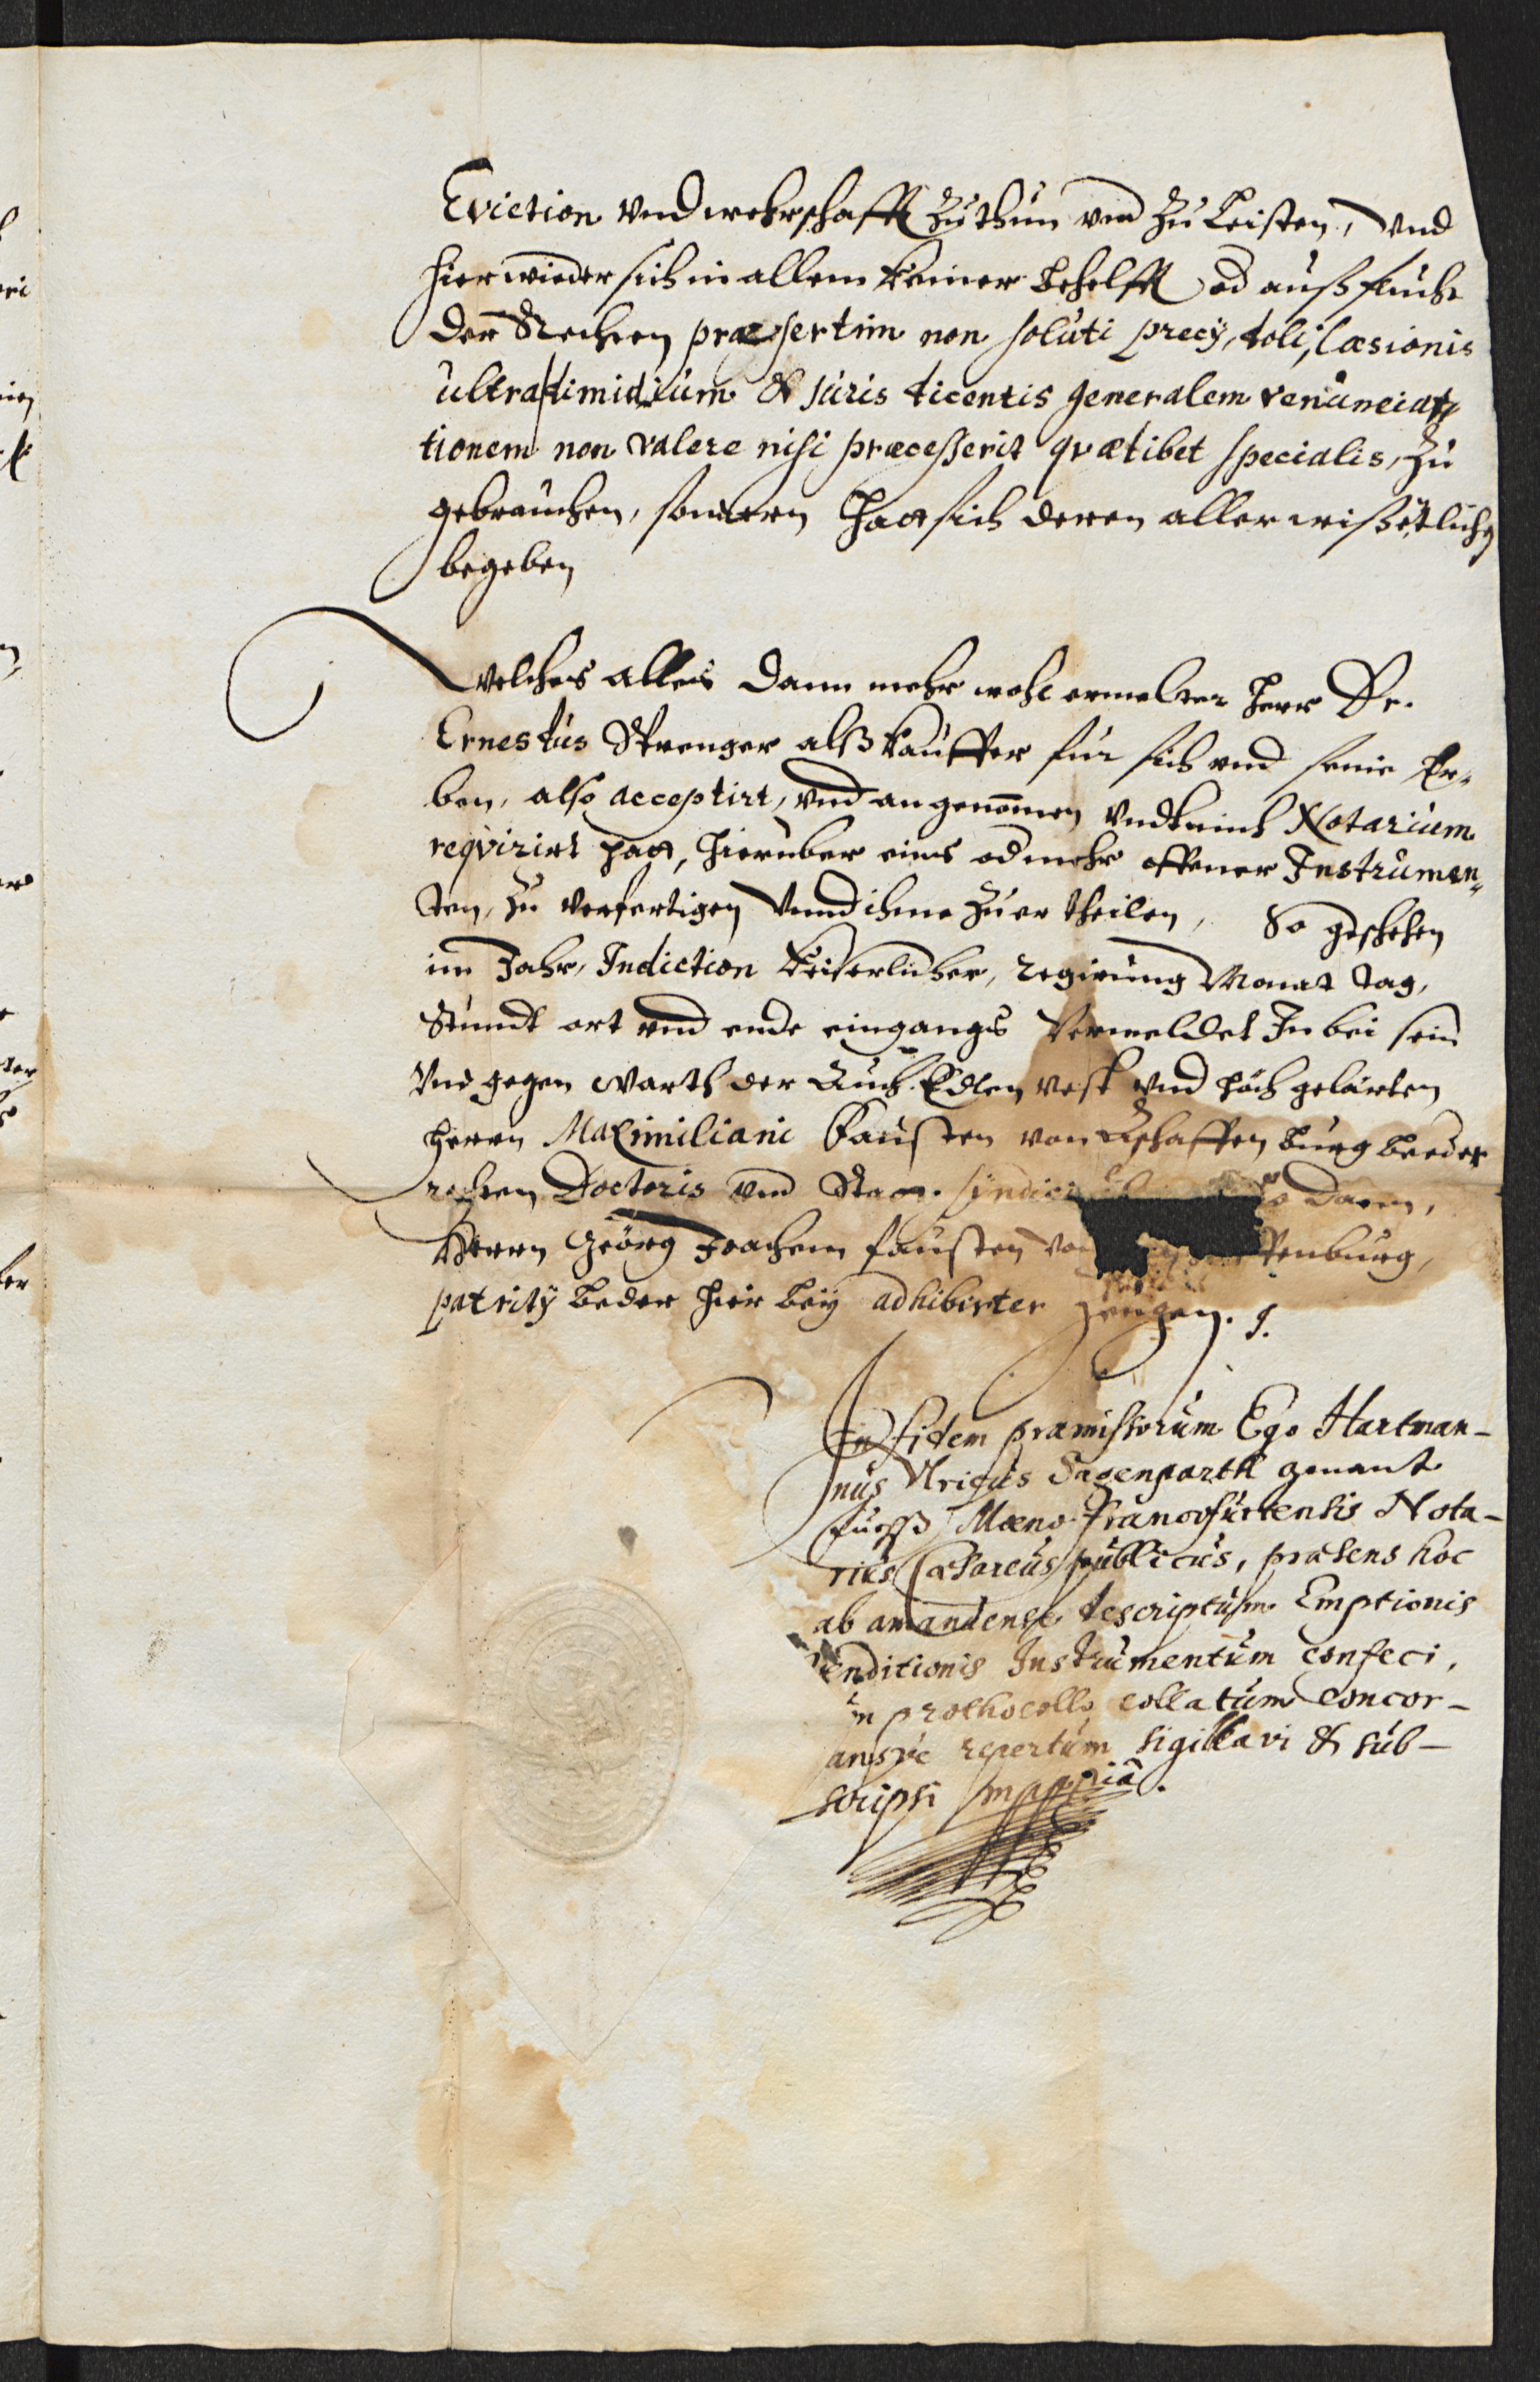 Eviction vnd wehrschafft zu thun vnd zu Leisten, vnd
hierwieder sich in allem keiner behelff od außflucht
der Rechten præsertim non soluti precij, doli, læsionis
ultra dimidium & juris dicentis generalem renunciat
tionem non valere nisi præcesserit quælibet specialis, zu
gebrauchen, sondern hatt sich deren aller wißētlichē
begeben
welches alles dann mehr wohl ermelter Herr Dr.
Ernestus Strenger alß kauffer für sich vnd seine Er-
ben, also acceptirt, vnd angenom̄en vndt mich Notarium
requirirt hatt, hierüber eins od mehr offener Instrumen-
ten, zu verfertigen vnnd ihme zu ertheilen, So geschehen
im Jahr, Indiction Keiserlicher, regirung Monat tag,
Stundt ort vnd ende eingangs vermeldet In bei sein
vnd gegen warth der Auch Edlen vest vnd hoch gelärten
Herrn Maximiliani Fausten von Aschaffenburg beeder
rechten Doctoris vnd Statt Syndici
Herrn Georg Joachem Fausten von tenburg,
patritij beder hier beij adhibirter Zeugen.
In fidem præmissorum Ego Hartman-
nus Sagenparth genant
Mœno-Francofurtensis Nota-
rius Cæsareus publicus, præsens hoc
ab amanuense descriptum Emptionis
Venditionis Instrumentum confeci,
in prothocollo collatum concor-
ansqve repertum sigillavi & sub-
scripsi mappriâ.